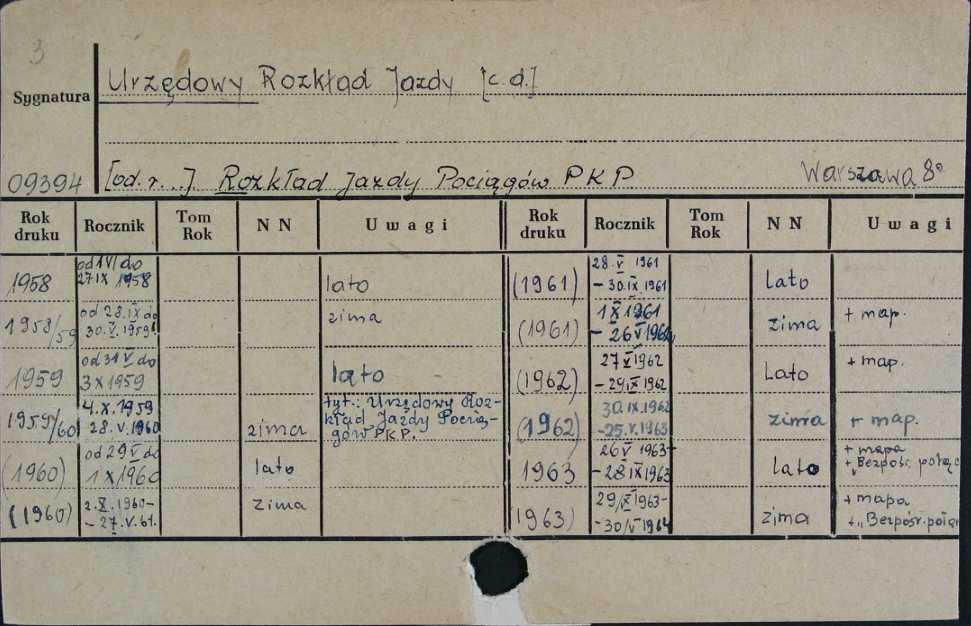 3
Urzędowy Rozkład Jazdy [c.d.]
Sygnatura
09394 [od. r. ..] Rozkład Jazdy Pociągów PKP Warszawa 8°
Rok druku Rocznik Tom Rok NN Uwagi Rok druku Rocznik Tom Rok NN Uwagi
1958 od 1 VI do 27 IX 1958 lato
1958/59 od 28.IX do 30.V.1959 zima
1959 od 31 V do 3 X 1959 lato
1959/60 4.X.1959 28.V.1960 zima tyt.: Urzędowy Roz-
kład Jazdy Pocią-
gów PKP.
(1960) od 29 V do 1 X 1960 lato
(1960) 2.X.1960- - 27.V.61. zima
(1961) 28.V 1961 - 30.IX 1961 lato
(1961) 1 X 1961 - 26 V 1962 zima + map.
(1962) 27 V 1962 - 29.IX 1962 Lato + map.
(1962) 30.IX.1962 -25.V.1963 zima + map.
1963 26 V 1963- - 28 IX 1963 lato + mapa
+ „Bezpośr. połąc
1963) 29/IX 1963- -30/V 1964 zima + mapa
+ „Bezpośr. połą